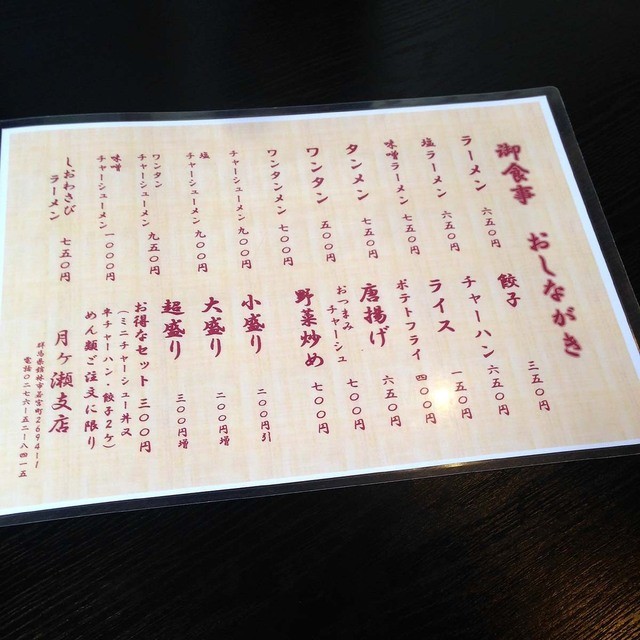 御食事 おしながき
ラーメン 六五〇円
塩ラーメン 六五〇円
味噌ラーメン 七五〇円
タンメン 七五〇円
ワンタン 五〇〇円
ワンタンメン 七〇〇円
チャーシューメン 九〇〇円
塩チャーシューメン 九〇〇円
ワンタンチャーシューメン 九五〇円
味噌チャーシューメン 一〇〇〇円
しおわさびラーメン 七五〇円
餃子 三五〇円
チャーハン 六五〇円
ライス 一五〇円
ポテトフライ 四〇〇円
唐揚げ 六五〇円
おつまみチャーシュー 七〇〇円
野菜炒め 七〇〇円
小盛り 二〇〇円引
大盛り 二〇〇円増
超盛り 三〇〇円増
お得なセット 三〇〇円
(ミニチャーシュー丼又
半チャーハン・餃子2ケ)
めん類ご注文に限り
月ヶ瀬支店
群馬県館林市若宮町2694-1
電話〇二七六-五二-八四一五